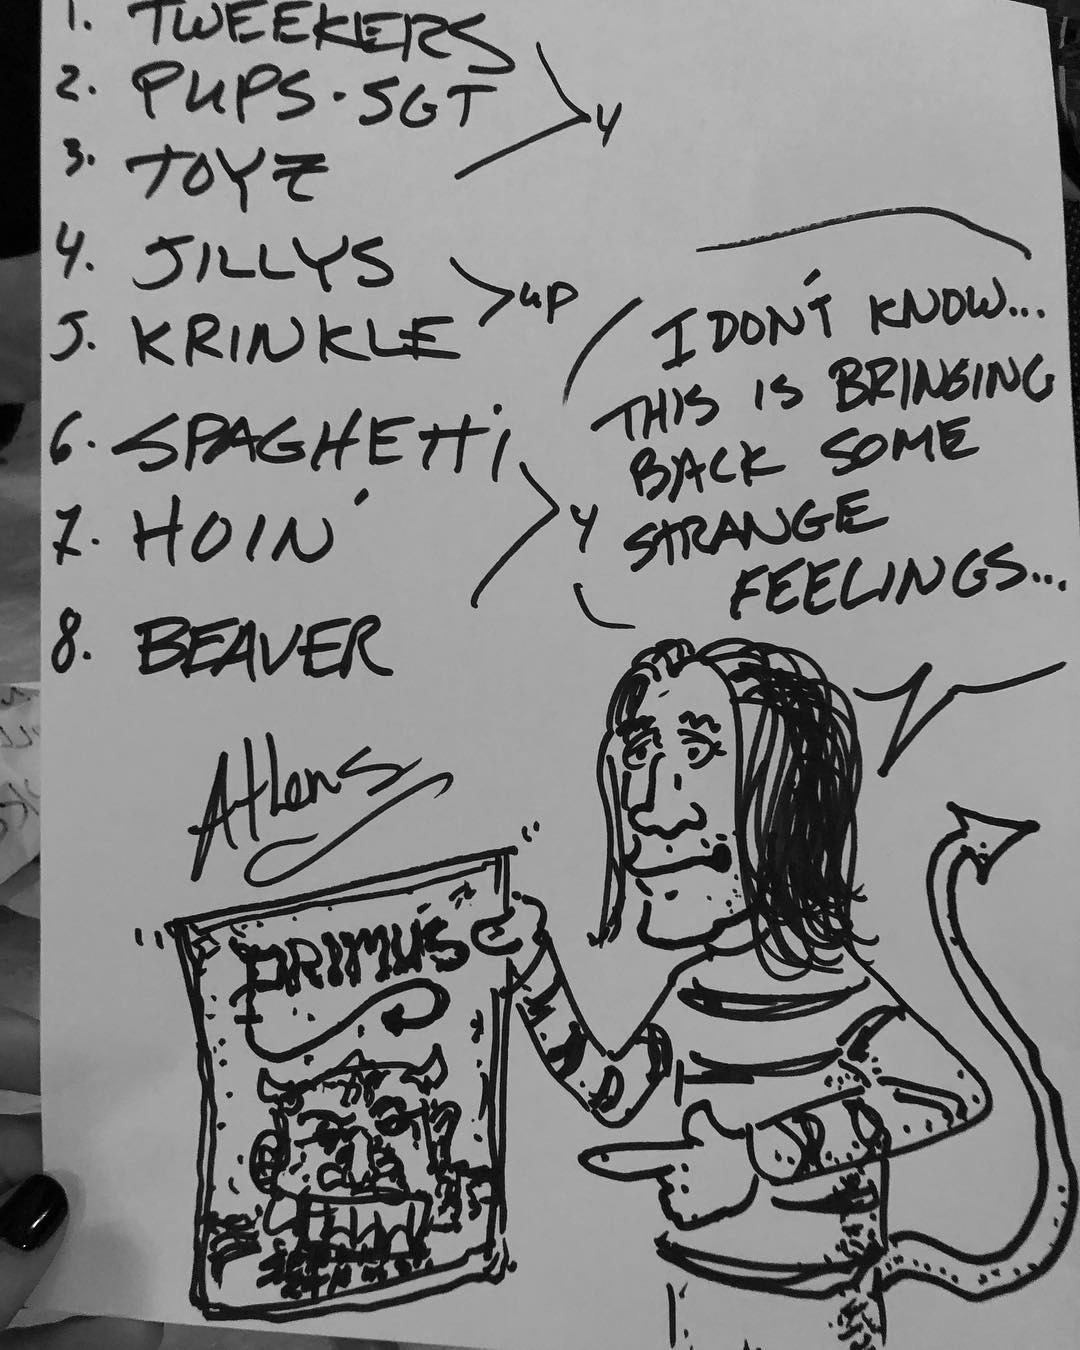 1. TWEEKERS
2. PUPS · SGT
3. TOYZ
Y
4. JILLYS
5. KRINKLE
UP
6. SPAGHETTi
7. HOIN'
8. BEAVER
Y
I DON'T KNOW...
THIS IS BRINGING
BACK SOME
STRANGE
FEELINGS...
Athens
PRIMUS